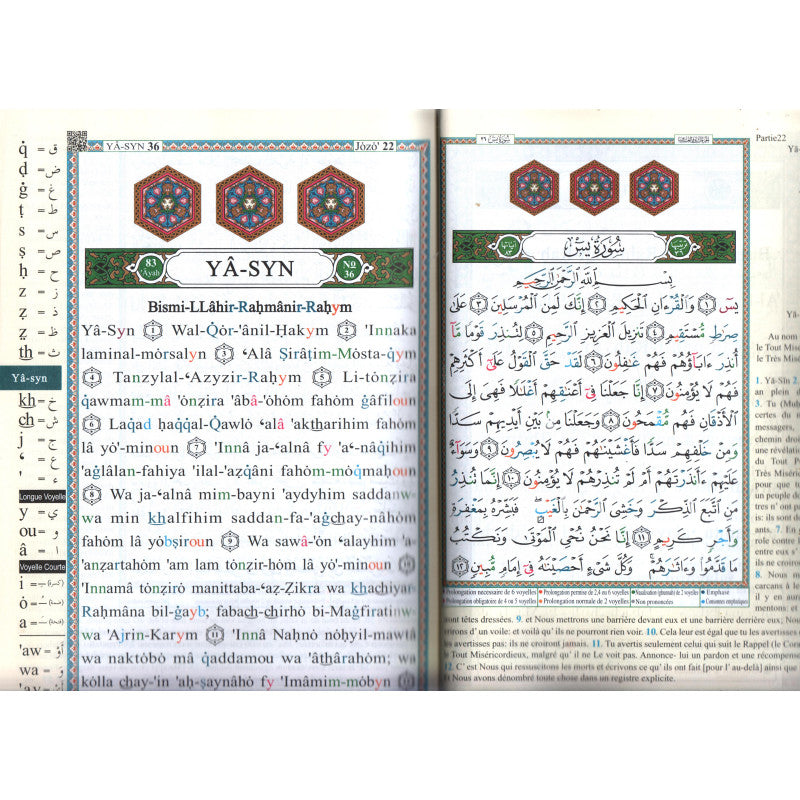 q̇ = ق
ḍ = ض
ġ = غ
ṭ = ط
s = س
ṣ = ص
ḥ = ح
z = ز
ẓ = ظ
th = ث
Yâ-syn
kh = خ
ch = ش
j = ج
ʿ = ع
' = ء
Longue Voyelle
y = ي
ou = و
â = ا
Voyelle Courte
i =
ó =
a =
'aw = أَوْ
wa = وَ
YÂ-SYN 36
Jòzò' 22
83
'Âyah
YÂ-SYN
No
36
Bismi-LLâhir-Raḥmânir-Raḥym
Yâ-Syn 1 Wal-Q̇òr-'ânil-Ḥakym 2 'Innaka
laminal-mòrsalyn 3 ʿAlâ Ṣirâṭim-Mòsta-q̇ym
4 Tanzylal-ʿAzyzir-Raḥym 5 Li-tònẓira
q̇awmam-mâ 'ònẓira 'âbâ-'òhòm fahòm ġâfiloun
6 Laq̇ad ḥaq̇q̇al-Q̇awlò ʿalâ 'aktharihim fahòm
lâ yò'-minoun 7 'Innâ ja-ʿalnâ fy 'a-ʿnâq̇ihim
'aġlâlan-fahiya 'ilal-'aẓq̇âni fahòm-mòq̇maḥoun
8 Wa ja-ʿalnâ mim-bayni 'aydyhim saddanw-
wa min khalfihim saddan-fa-'aġchay-nâhòm
fahòm lâ yòbṣiroun 9 Wa sawâ-'òn ʿalayhim 'a-
'anẓartahòm 'am lam tònẓir-hòm lâ yò'-minoun 10
'Innamâ tònẓirò manittaba-ʿaẓ-Ẓikra wa khachiyar-
Raḥmâna bil-ġayb; fabach-chirhò bi-Maġfiratinw-
wa 'Ajrin-Karym 11 'Innâ Naḥnò nòḥyil-mawtâ
wa naktòbò mâ q̇addamou wa 'âthârahòm; wa
kòlla chay-'in 'aḥ-ṣaynâhò fy 'Imâmim-mòbyn 12
سُورَةُ يسٓ ٣٦
Partie22
سُورَةُ يسٓ
بِسْمِ ٱللَّهِ ٱلرَّحْمَٰنِ ٱلرَّحِيمِ
يسٓ ١ وَٱلْقُرْءَانِ ٱلْحَكِيمِ ٢ إِنَّكَ لَمِنَ ٱلْمُرْسَلِينَ ٣ عَلَىٰ
صِرَٰطٍ مُّسْتَقِيمٍ ٤ تَنزِيلَ ٱلْعَزِيزِ ٱلرَّحِيمِ ٥ لِتُنذِرَ قَوْمًا مَّآ
أُنذِرَ ءَابَآؤُهُمْ فَهُمْ غَٰفِلُونَ ٦ لَقَدْ حَقَّ ٱلْقَوْلُ عَلَىٰٓ أَكْثَرِهِمْ
فَهُمْ لَا يُؤْمِنُونَ ٧ إِنَّا جَعَلْنَا فِىٓ أَعْنَٰقِهِمْ أَغْلَٰلًا فَهِىَ إِلَى
ٱلْأَذْقَانِ فَهُم مُّقْمَحُونَ ٨ وَجَعَلْنَا مِنۢ بَيْنِ أَيْدِيهِمْ سَدًّا
وَمِنْ خَلْفِهِمْ سَدًّا فَأَغْشَيْنَٰهُمْ فَهُمْ لَا يُبْصِرُونَ ٩ وَسَوَآءٌ
عَلَيْهِمْ ءَأَنذَرْتَهُمْ أَمْ لَمْ تُنذِرْهُمْ لَا يُؤْمِنُونَ ١٠ إِنَّمَا تُنذِرُ
مَنِ ٱتَّبَعَ ٱلذِّكْرَ وَخَشِىَ ٱلرَّحْمَٰنَ بِٱلْغَيْبِ فَبَشِّرْهُ بِمَغْفِرَةٍ
وَأَجْرٍ كَرِيمٍ ١١ إِنَّا نَحْنُ نُحْىِ ٱلْمَوْتَىٰ وَنَكْتُبُ
مَا قَدَّمُوا۟ وَءَاثَٰرَهُمْ وَكُلَّ شَىْءٍ أَحْصَيْنَٰهُ فِىٓ إِمَامٍ مُّبِينٍ ١٢
Prolongation nécessaire de 6 voyelles
Prolongation permise de 2,4 ou 6 voyelles
Nasalisation (ghunnah) de 2 voyelles
Emphase
Prolongation obligatoire de 4 ou 5 voyelles
Prolongation normale de 2 voyelles
Non prononcées
Consonnes emphatiques
sont têtes dressées. 9. et Nous mettrons une barrière devant eux et une barrière derrière eux; Nous
rirons d' un voile: et voilà qu' ils ne pourront rien voir. 10. Cela leur est égal que tu les avertisses
avertisses pas: ils ne croiront jamais. 11. Tu avertis seulement celui qui suit le Rappel (le Coran)
e Tout Miséricordieux, malgré qu' il ne Le voit pas. Annonce- lui un pardon et une récompense
12. C' est Nous qui ressuscitons les morts et écrivons ce qu' ils ont fait [pour l' au-delà] ainsi que
Nous avons dénombré toute chose dans un registre explicite.
Yâ-
Au nom
le Tout Misé
le Très Misé
1. Yâ-Sîn 2.
an plein d
3. Tu (Muḥ
certes du n
messagers,
chemin droi
une révélati
du Tout P
Très Misér
pour que t
un peuple de
tres n' ont p
is: ils sont de
ants. 7. En
role contre l
entre eux s'
ils ne croiron
8. Nous m
il y en aura
mentons: et